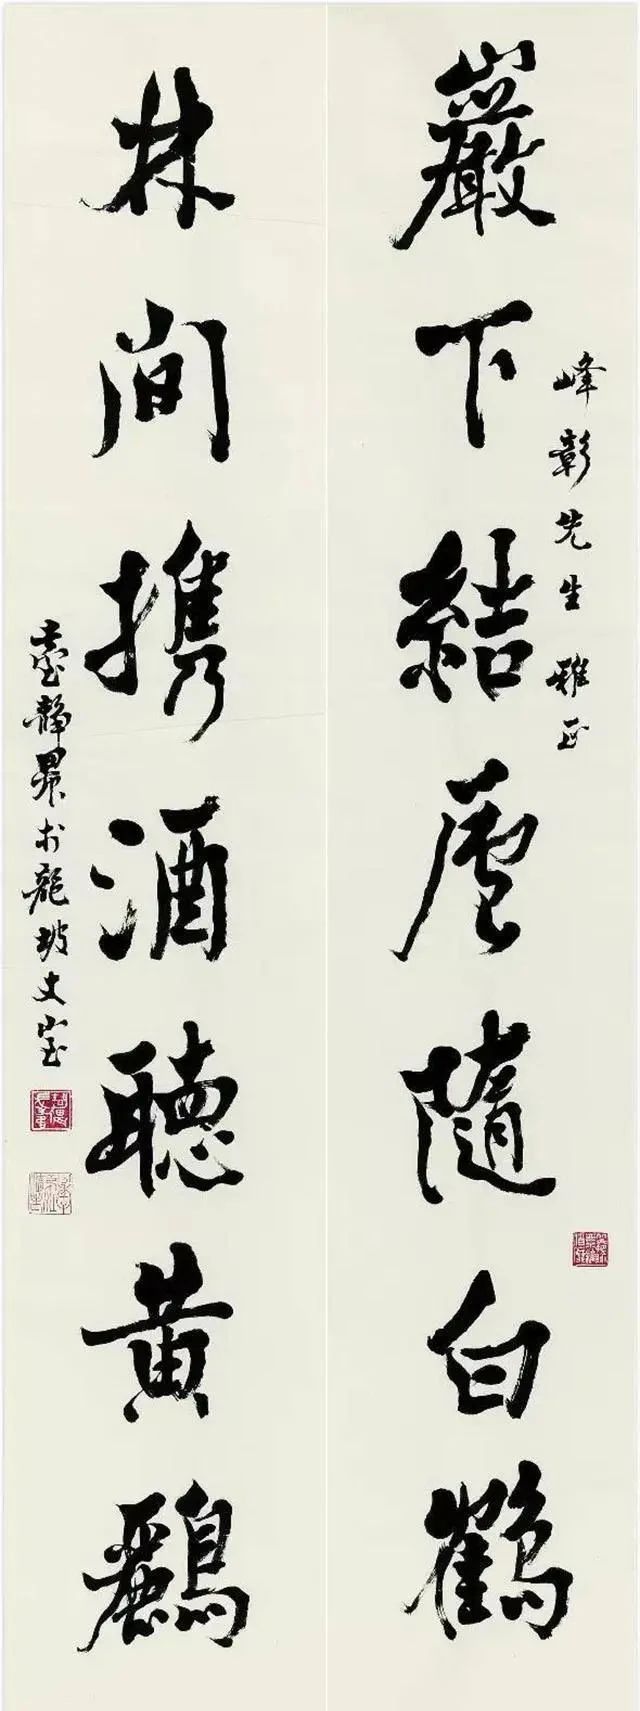 峰彰先生雅正
巖下結廬隨白鶴
林間携酒聽黃鸝
臺靜農於龍坡丈室